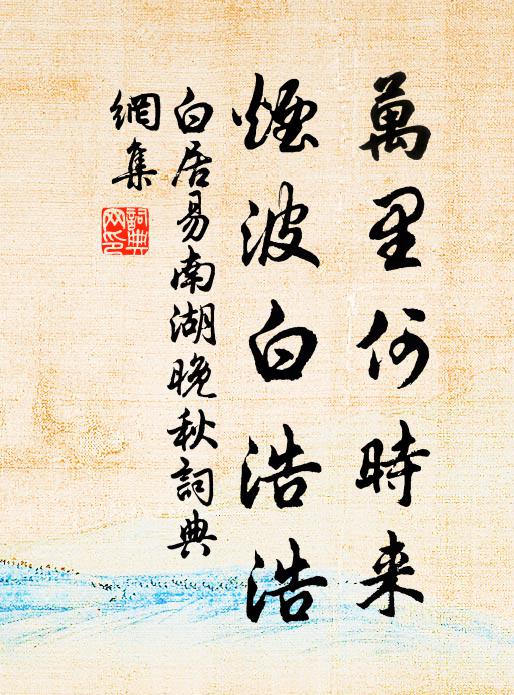 萬里何時来
煙波白浩浩
白居易南湖晚秋詞典
網集
詞典
网印